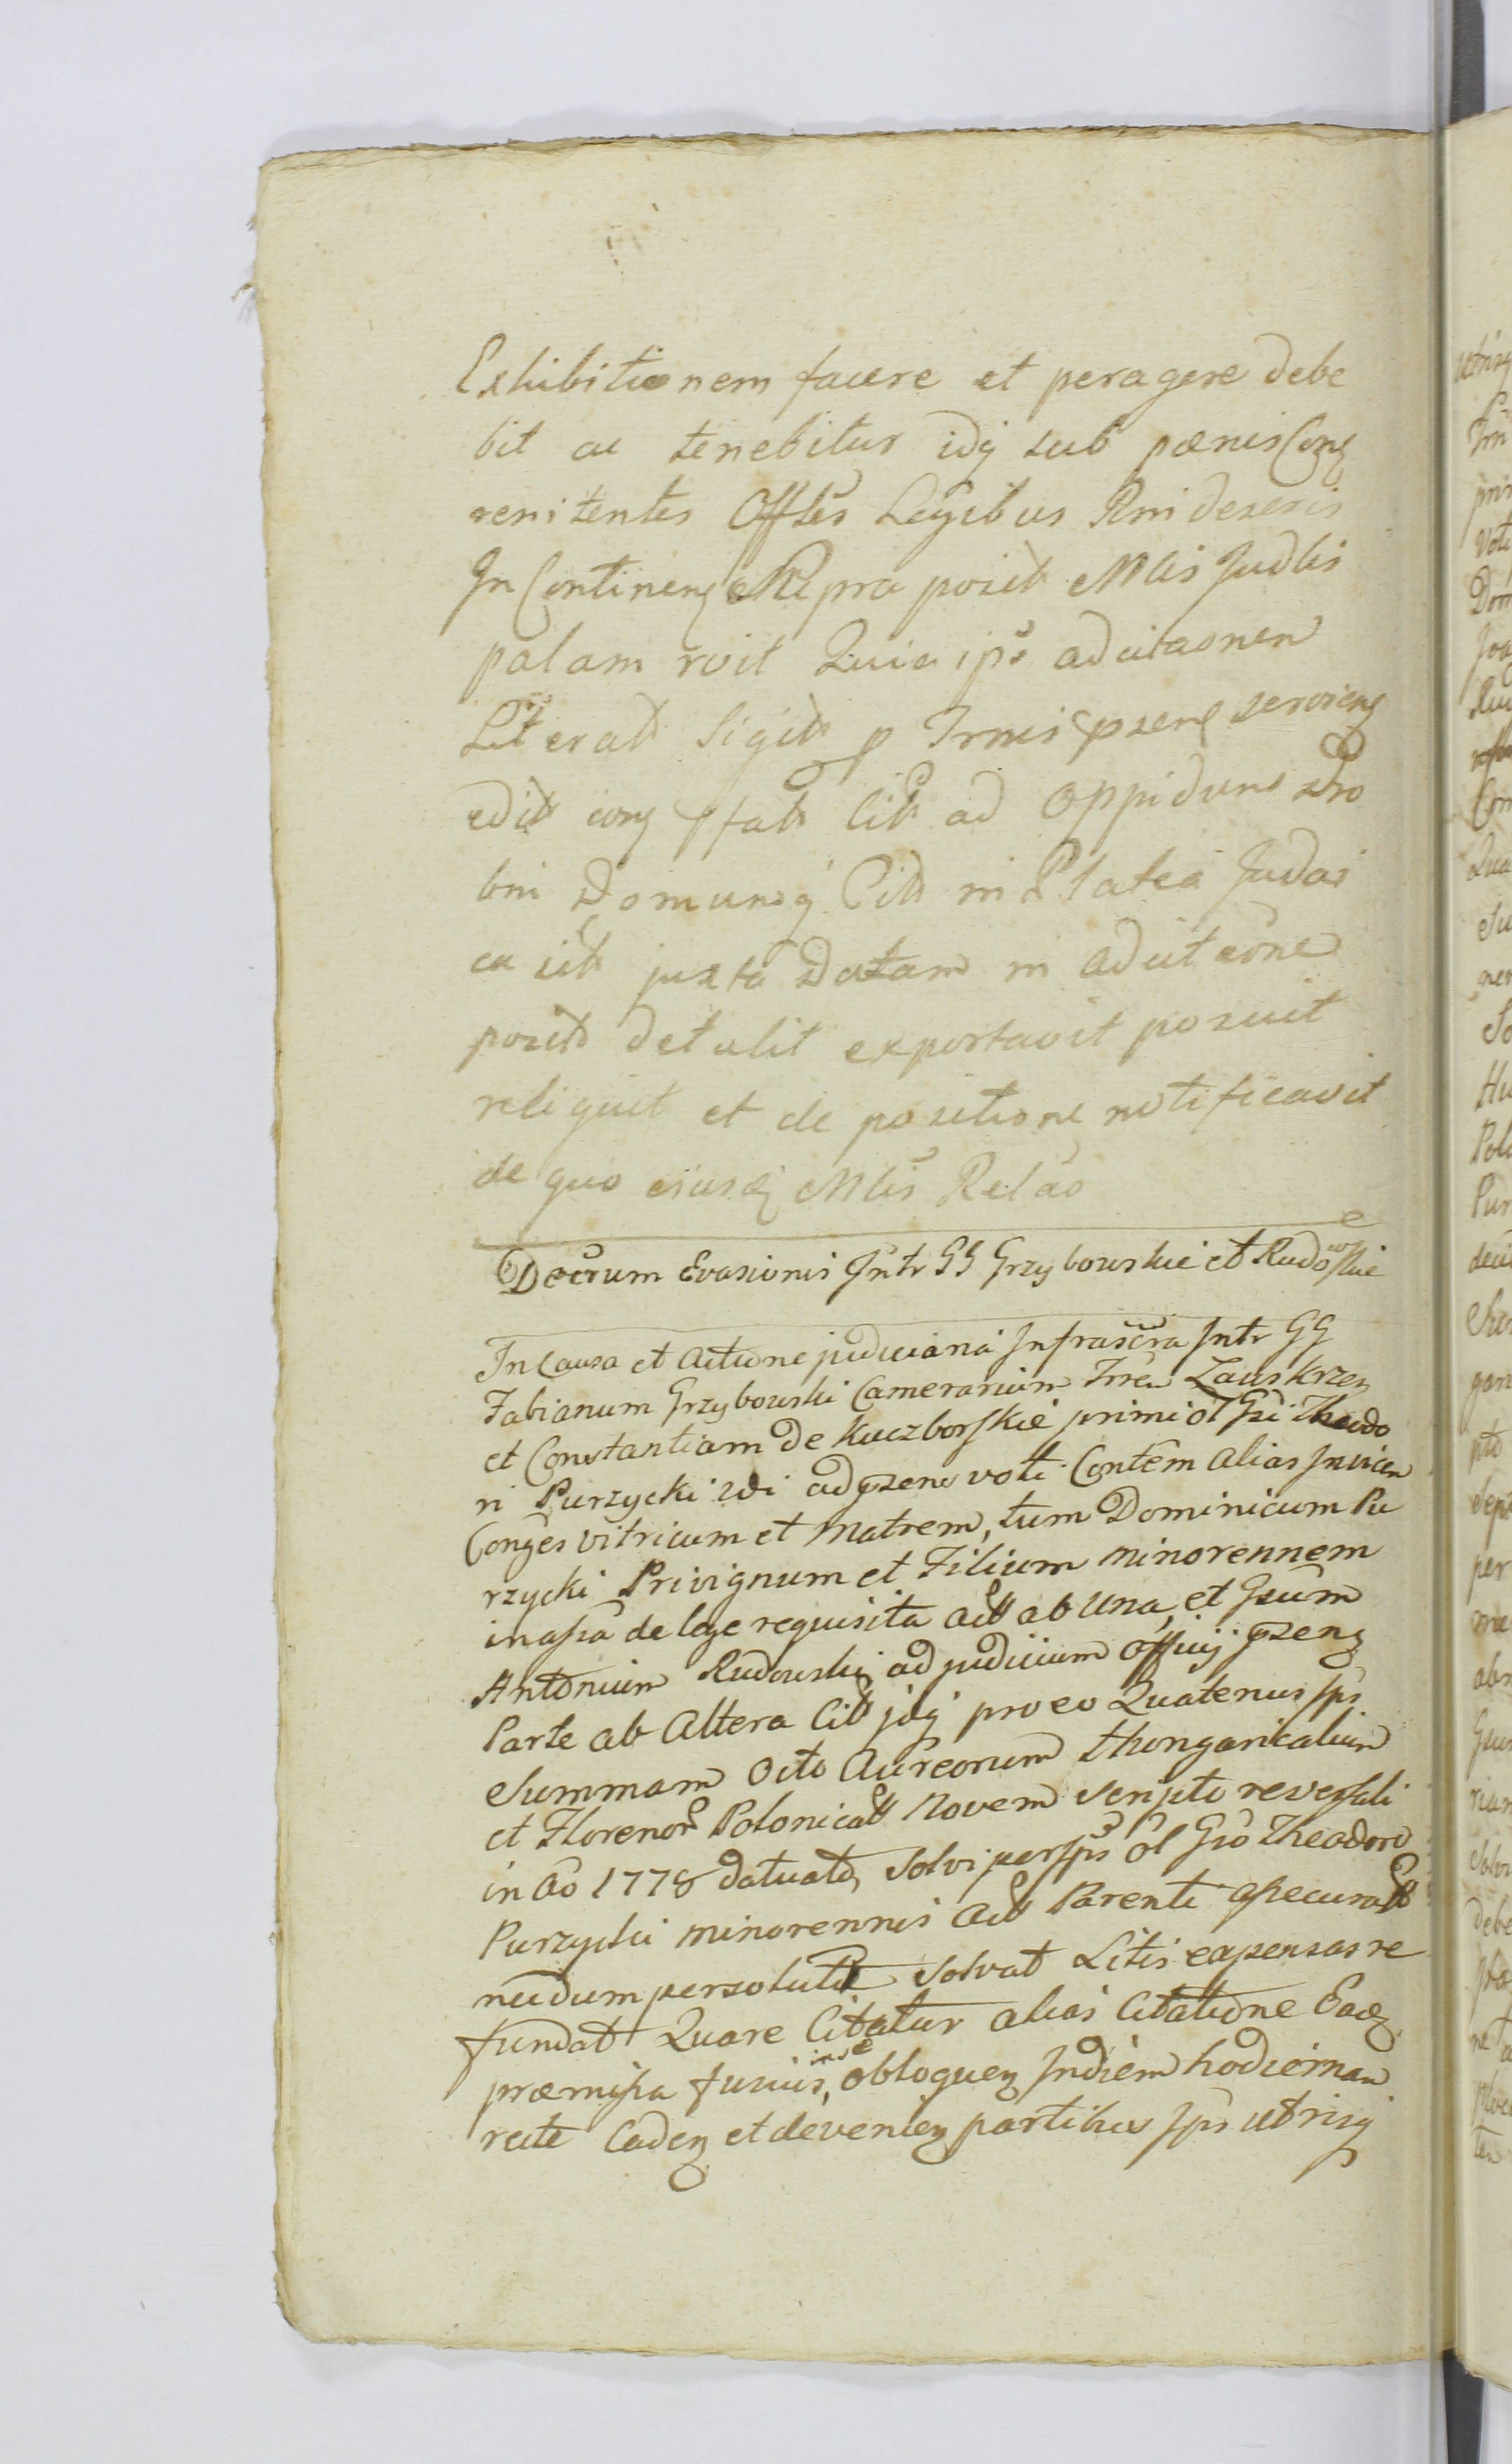 Exhibitionem facere et peragere debe
bit ac tenebitur idq sub pœnis Conq
renitentes Offles Legibus Rni deseris
In Continenq pra posit Mlis Judlis
palam roit Quia ips adcitaonem
Literat Sigit p Irmis pzenq serviens
edit ad Oppidum Dro
bni Domumq Cit in Platea Judai
ca sit juxta Datam in adcitaone
posit detulit exportavit posuit
reliquit et de positione notificavit
de quo eiusq Mlis Relao
Decrum Evasionis Intr GG Grzybowskie et Rudowskie
In Causa et Actione judiciaria Infrascra Intr GG
Fabianum Grzybowski Camerarium Trren Zawskrzen
et Constantiam de Kuczborskie primi ol Gsi Theodo
ri Purzycki 2di adpzens voti Contem alias Invicem
Conges vitricum et Matrem, tum Dominicum Pu
rzycki Privignum et Filium minorennem
in assa de lege requisita act ab Una, et Gsum
Antonium Rudowski ad judicium officij pzenq
Parte ab Altera Cit idq pro eo Quatenus Ips
Summam Octo Aureorum Hungaricalium
et Florenor Polonical Novem scripto reversali
in Ao 1778 datuato, solvi per Ips ol Gso Theodoro
Purzycki minorennis act Parenti assecurat
nudum persolut solvat Litis expensas re
fundat Quare Citatur alias Citatione Eaq
præmissa fusius in se obloquen In diem hodiernam
recte Caden et devenien partibus Ips utrisq